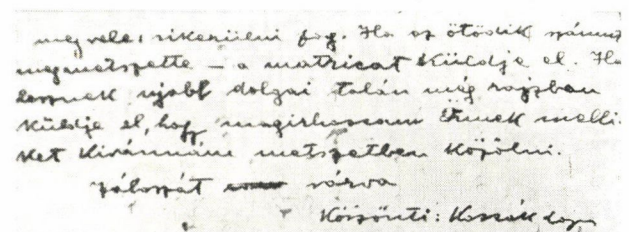 meg vele: sikerülni fog. Ha az ötödik számot
megmetszette — a matricat küldje el. Ha
lesznek ujabb dolgai talán még rajzban
küldje el, hogy megirhassam Önnek melli-
ket kivánnám metszetben közölni.
válaszát várva
Köszönti: Kassák Lajos